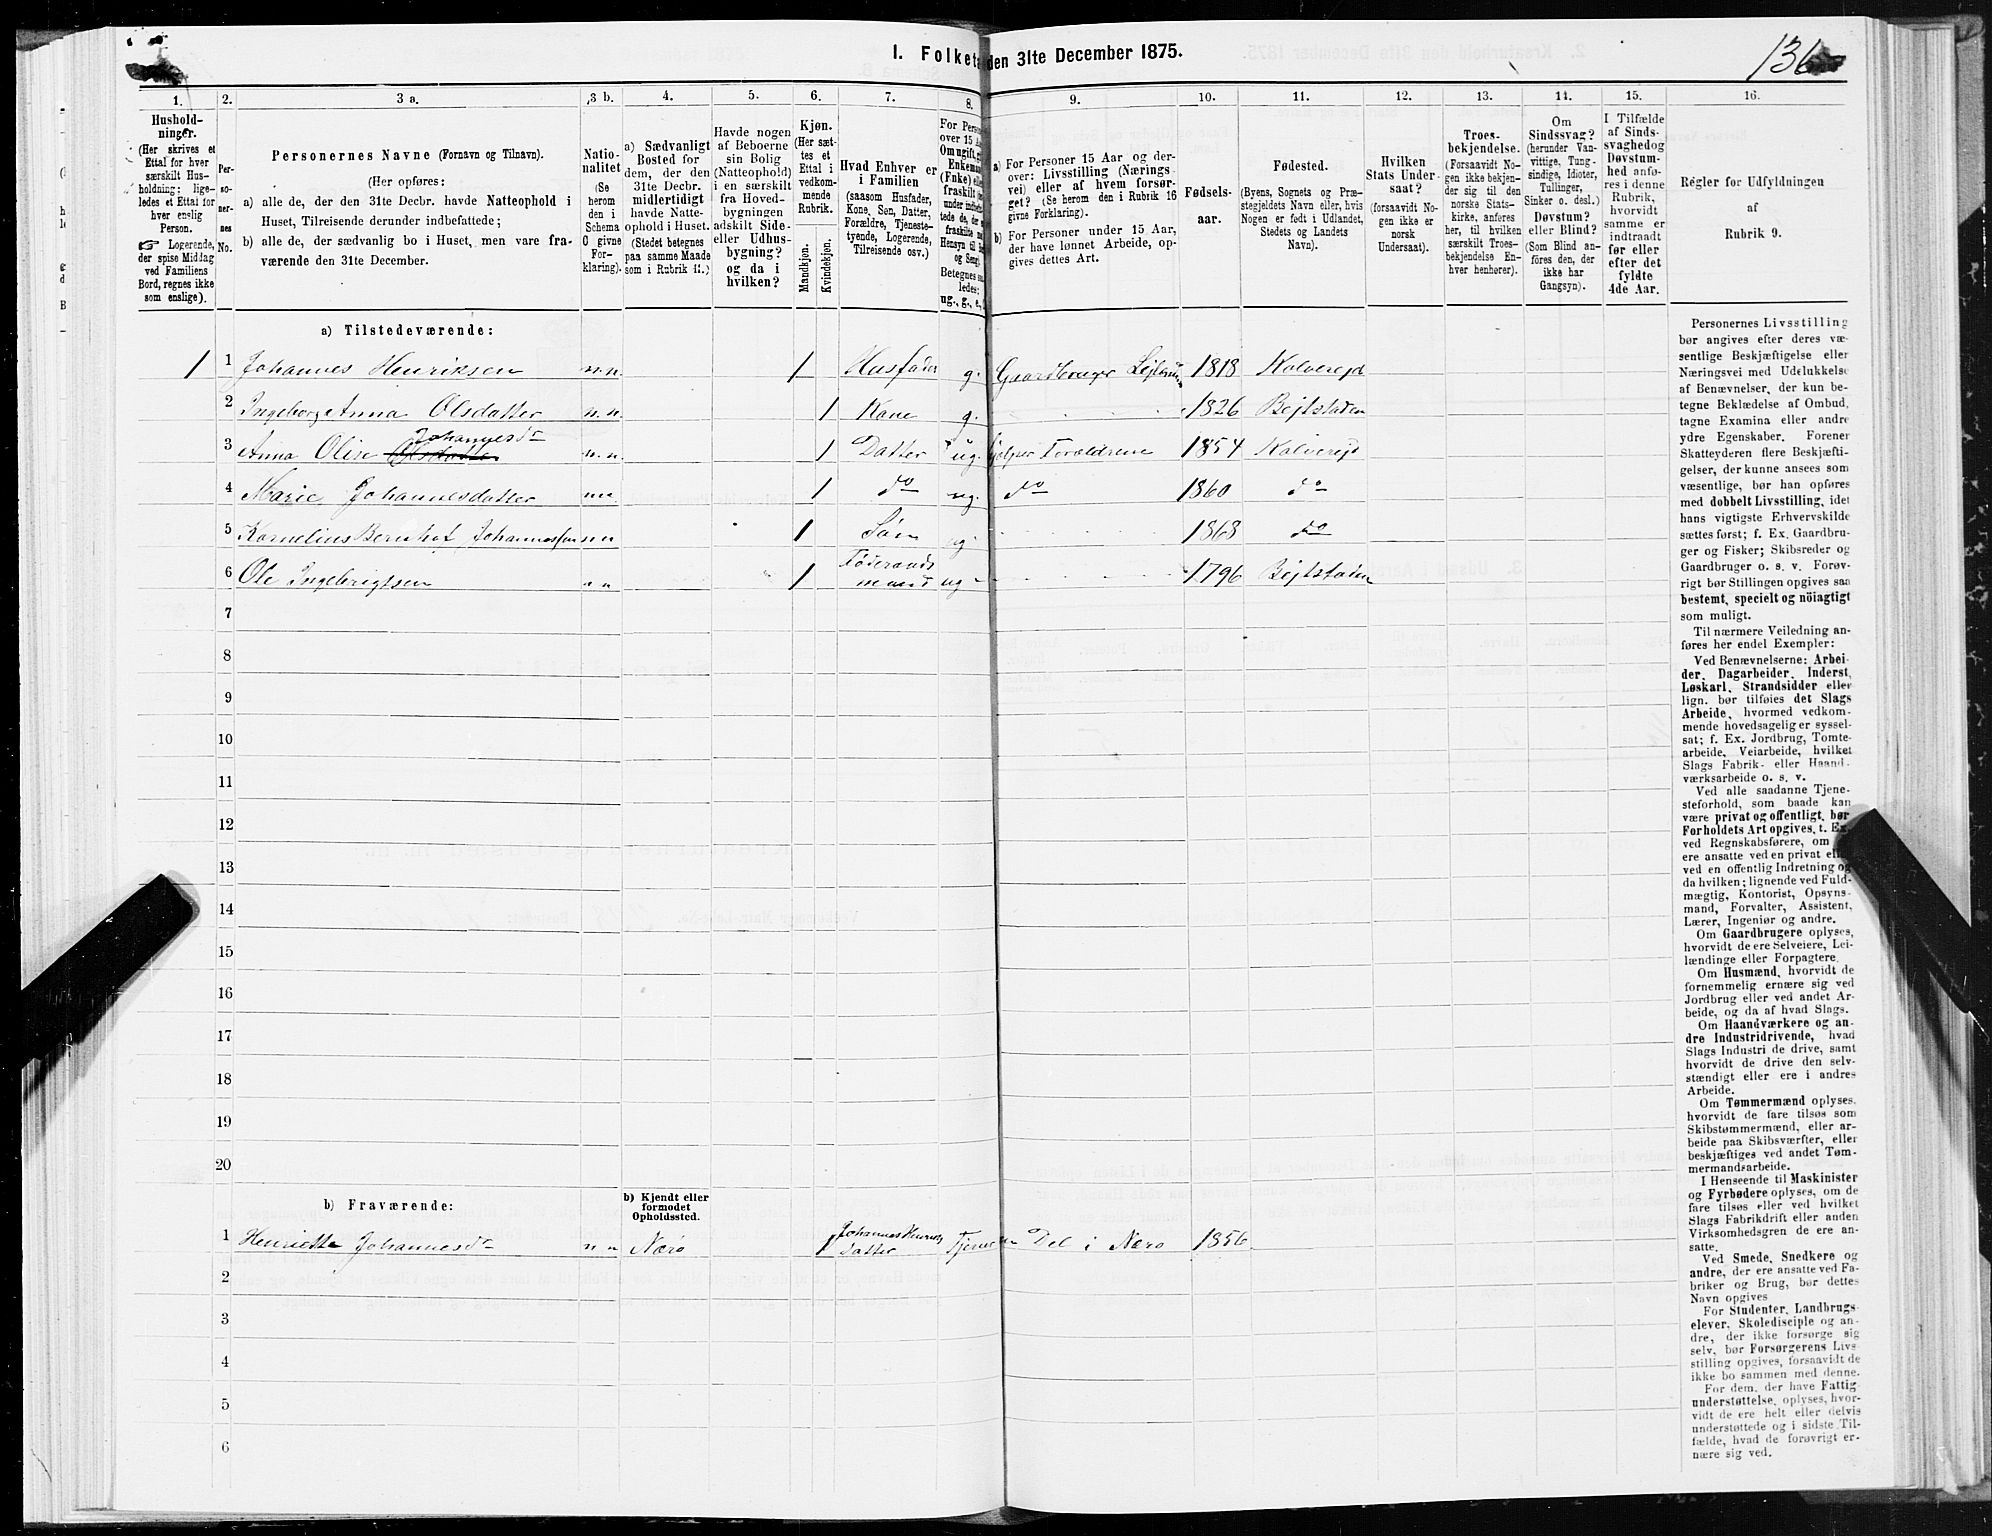 I. Folketæ den 31te December 1875.
136
1. 2. 3 a. 3 b. 4. 5. 6. 7. 8. 9. 10. 11. 12. 13. 14. 15. 16.
Hushold-
ninger.
(Her skrives et
Ettal for hver
særskilt Hus-
holdning; lige-
ledes et Ettal for
hver enslig
Person.
☞ Logerende,
der spise Middag
ved Familiens
Bord, regnes ikke
som enslige).
Per-
so-
ner-
nes
No.
Personernes Navne (Fornavn og Tilnavn).
(Her opføres:
a) alle de, der den 31te Decbr. havde Natteophold i
Huset, Tilreisende derunder indbefattede;
b) alle de, der sædvanlig bo i Huset, men vare fra-
værende den 31te December.
Natio-
nalitet
(Se
herom
den i
Schema
O givne
For-
klaring).
a) Sædvanligt
Bosted for
dem, der den
31te Decbr.
midlertidigt
havde Natte-
ophold i Huset.
(Stedet betegnes
paa samme Maade
som i Rubrik 11.)
Havde nogen
af Beboerne
sin Bolig
(Natteophold)
i en særskilt
fra Hoved-
bygningen
adskilt Side-
eller Udhus-
bygning?
og da i
hvilken?
Kjøn.
(Her sæt-
tes et
Ettal i
vedkom-
mende
Rubrik.
Mandkjøn.
Kvindekjøn.
Hvad Enhver er
i Familien
(saasom Husfader,
Kone, Søn, Datter,
Forældre, Tjeneste-
tyende, Logerende,
Tilreisende osv.)
For Person
over 15 Aa
Om ugift, g
Enkema
(Enke) el
fraskilt
under indb
tede de, de
fraskilte
Hensyn til
og Seng
Betegnes sa
ledes:
ug., g., e.,
a) For Personer 15 Aar og der-
over: Livsstilling (Nærings-
vei) eller af hvem forsør-
get? (Se herom den i Rubrik 16
givne Forklaring).
b) For Personer under 15 Aar,
der have lønnet Arbeide, op-
gives dettes Art.
Fødsels-
aar.
Fødested.
(Byens, Sognets og Præ-
stegjeldets Navn eller, hvis
Nogen er født i Udlandet,
Stedets og Landets
Navn).
Hvilken
Stats Under-
saat?
(forsaavidt No-
gen ikke er
norsk
Undersaat).
Troes-
bekjendelse.
(Forsaavidt No-
gen ikke bekjen-
der sig til den
norske Stats-
kirke, anføres
her, til hvilken
særskilt Troes-
bekjendelse En-
hver henhører).
Om
Sindssvag?
(herunder Van-
vittige, Tung-
sindige, Idioter,
Tullinger,
Sinker o. desl.)
Døvstum?
eller Blind?
(Som Blind an-
føres den, der
ikke har
Gangsyn).
I Tilfælde
af Sinds-
svaghed og
Døvstum-
hed anfø-
res i denne
Rubrik,
hvorvidt
samme er
indtraadt
før eller
efter det
fyldte
4de Aar.
Regler for Udfyldningen
af
Rubrik 9.
a) Tilstedeværende:
1 1 Johannes Henriksen n.n. 1 Husfader g. Gaardbruger 1818 Kolverejd
2 Ingeborg Anna Olsdatter n.n. 1 Kone g. 1826 Bejtstaden
3 Anna Olise Olsdatter Johannesdr n.n. 1 Datter ug. hjelper Forældrene 1854 Kolverejd
4 Marie Johannesdatter nn. 1 do ug. do 1860 do
5 Kornelius Bernhof Johannessen nn 1 Søn ug. 1868 do
6 Ole Ingebrigtsen nn 1 Føderaads
mand ug 1796 Bejtstaden
7
8
9
10
11
12
13
14
15
16
17
18
19
20
b) Fraværende:
b) Kjendt eller
formodet
Opholdssted.
1 Henriette Johannesdr n n Nærø 1 Johannes Henriks
datter Tjener Del i Nærø 1856
2
3
4
5
6
Personernes Livsstilling
bør angives efter deres væ-
sentlige Beskjæftigelse eller
Næringsvei med Udelukkelse
af Benævnelser, der kun be-
tegne Beklædelse af Ombud,
tagne Examina eller andre
ydre Egenskaber. Forener
Skatteyderen flere Beskjæfti-
gelser, der kunne ansees som
væsentlige, bør han opføres
med dobbelt Livsstilling, idet
hans vigtigste Erhvervskilde
sættes først; f. Ex. Gaardbru-
ger og Fisker; Skibsreder og
Gaardbruger o. s. v. Forøv-
rigt bør Stillingen opgives saa
bestemt, specielt og nöiagtigt
som muligt.
Til nærmere Veiledning an-
føres her endel Exempler:
Ved Benævnelserne: Arbei-
der, Dagarbeider, Inderst,
Løskarl, Strandsidder eller
lign. bør tilføies det Slags
Arbeide, hvormed vedkom-
mende hovedsagelig er syssel-
sat; f. Ex. Jordbrug, Tomte-
arbeide, Veiarbeide, hvilket
Slags Fabrik- eller Haand-
værksarbeide o. s. v.
Ved alle saadanne Tjene-
steforhold, som baade kan
være privat og offentligt, bør
Forholdets Art opgives, t. Ex.
ved Regnskabsførere, om
ere ansatte ved en privat el
ved en offentlig Indretning og
da hvilken; lignende ved Fuld-
mægtig, Kontorist, Opsyns-
mand, Forvalter, Assistent,
Lærer, Ingeniør og andre.
Om Gaardbrugere oplyses,
hvorvidt de ere Selveiere, Lei-
lændinge eller Forpagtere.
Om Husmænd, hvorvidt de
fornemmelig ernære sig ved
Jordbrug eller ved andet Ar-
beide, og da af hvad Slags.
Om Haandværkere og an-
dre Industridrivende, hvad
Slags Industri de drive, samt
hvorvidt de drive den selv-
stændigt eller ere i andres
Arbeide.
Om Tømmermænd oplyses,
hvorvidt de fare tilsøs som
Skibstømmermænd, eller ar-
beide paa Skibsværfter, eller
beskjæftiges ved andet Tøm-
mermandsarbeide.
I Henseende til Maskinister
og Fyrbødere oplyses, om de
fare tilsøs eller ved hvilket
Slags Fabrikdrift eller anden
Virksomhedsgren de ere an-
satte.
Ved Smede, Snedkere og
andre, der ere ansatte ved Fa-
briker og Brug, bør dettes
Navn opgives
For Studenter, Landbrugs-
elever, Skoledisciple og an-
dre, der ikke forsørge sig
selv, bør Forsørgerens Livs-
stilling opgives, forsaavidt de
ikke bo sammen med denne.
For dem, der have Fattig-
understøttelse, oplyses, hvor-
vidt de ere helt eller delvis
understøttede og i sidste Til-
fælde, hvad de forøvrigt er-
nære sig ved.